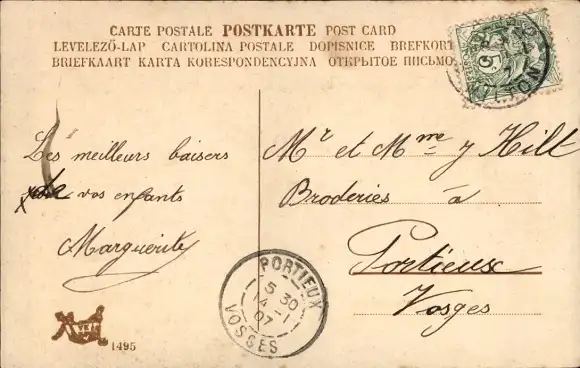 CARTE POSTALE POSTKARTE POST CARD
LEVELEZŐ-LAP CARTOLINA POSTALE DOPISNICE BREFKORT
BRIEFKAART KARTA KORESPONDENCYJNA ОТКРЫТОЕ ПИСЬМО
Les meilleurs baisers
de vos enfants
Marguerite
Mr et Mme J Hilt
Broderies à
Portieux
Vosges
PORTIEUX
5 30
4 -1
07
VOSGES
1495